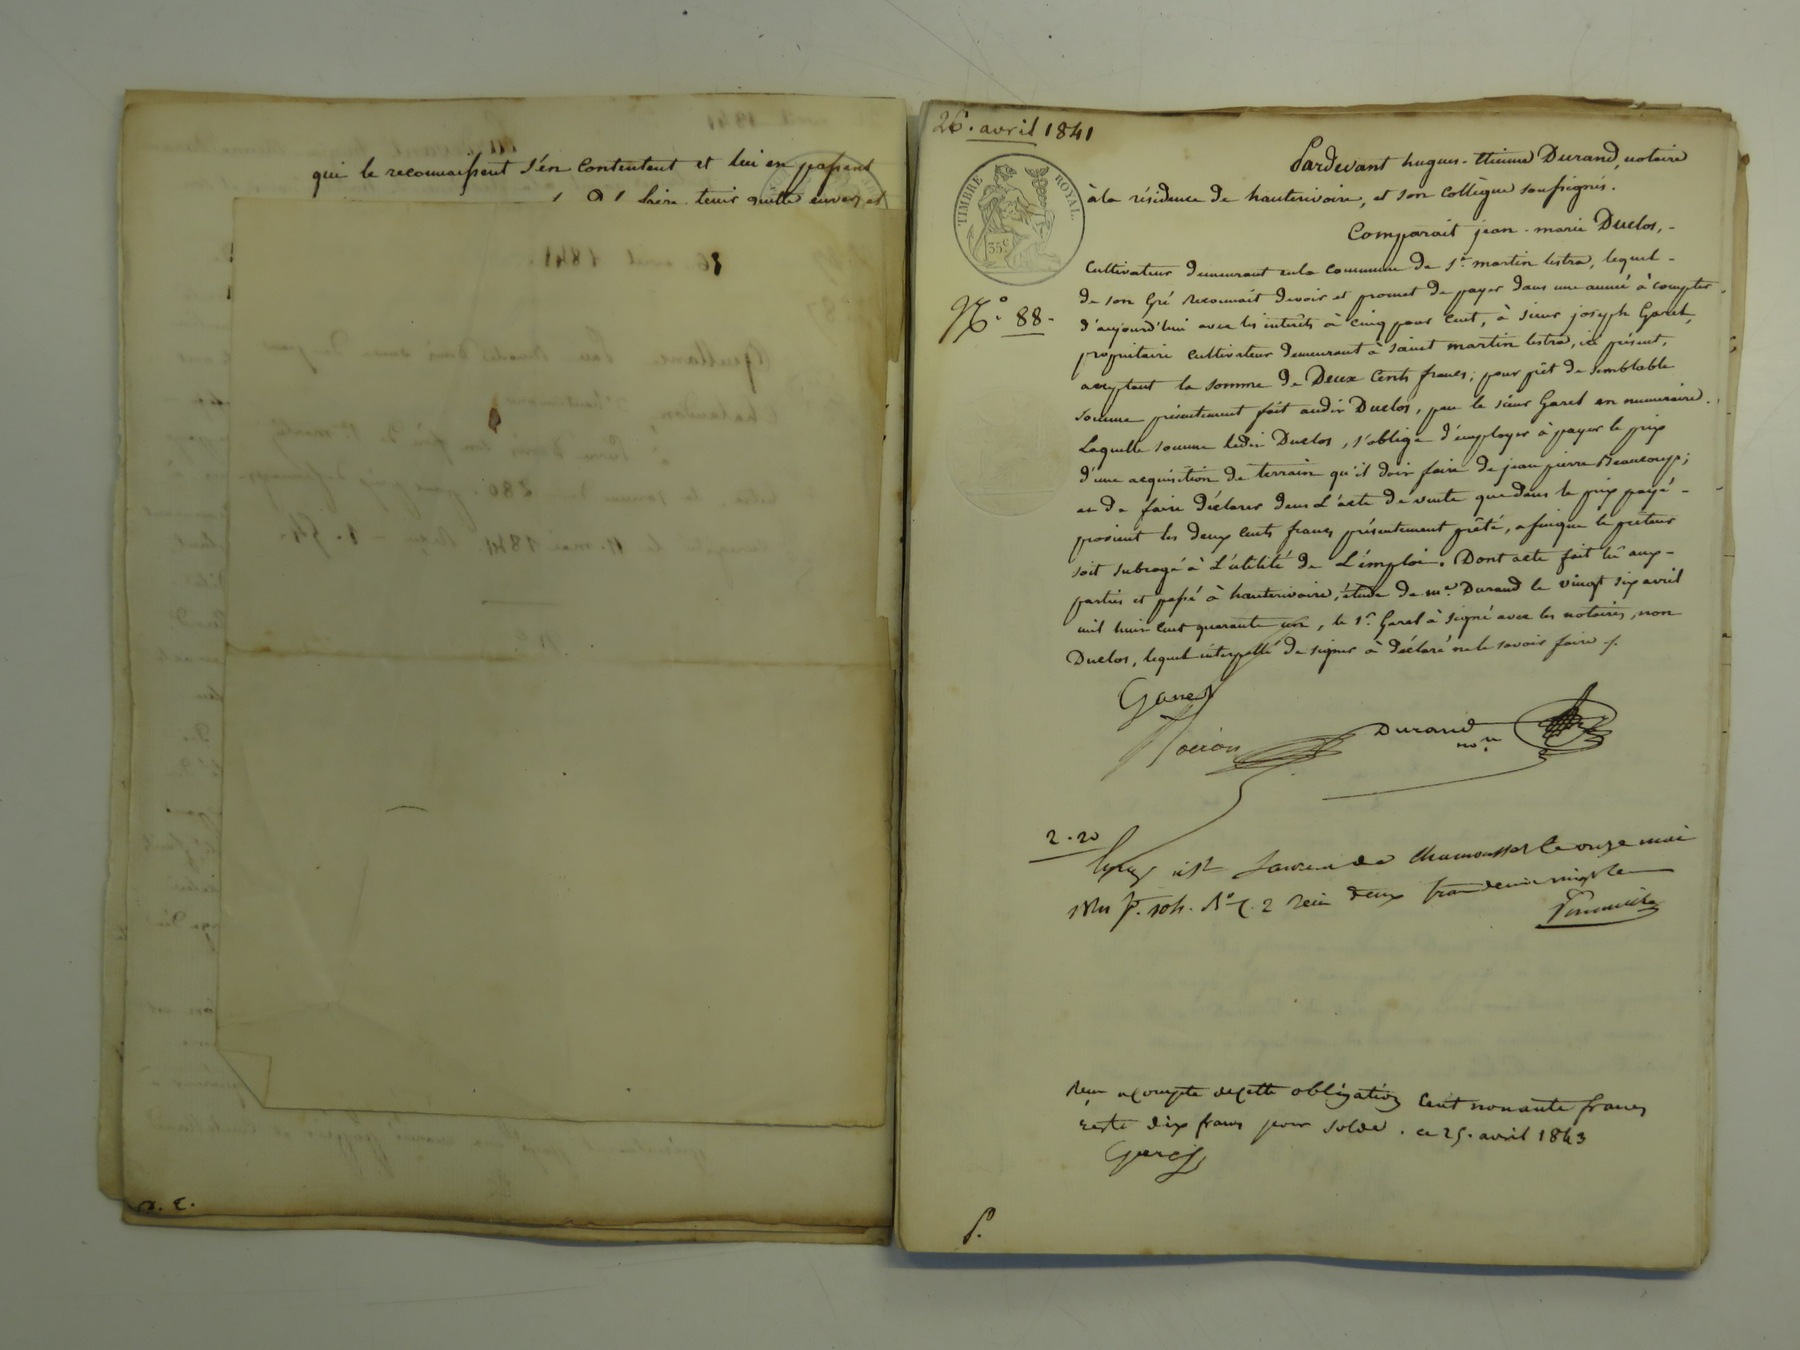 qui le reconnaissent s'en contentent et lui en passent
faire tenir quitte envers et
n. c.
26. avril 1841
TIMBRE ROYAL.
35c
N.° 88-
Pardevant hugues-Etienne Durand, notaire
à la résidence de hauterivoire, et son collègue soussignés.
Comparait jean-marie Duclos,-
Cultivateur demeurant en la commune de st. martin lestra, lequel-
de son gré reconnait devoir et promet de payer dans une année à compter
d'aujourd'hui avec les intérêts à cinq pour cent, à sieur joseph Garel,
propriétaire cultivateur demeurant à saint martin lestra, ici présent,
acceptant la somme de Deux Cents francs; pour prêt de semblable
somme présentement fait audit Duclos, par le sieur Garel en numéraire.
Laquelle somme ledit Duclos, s'oblige d'employer à payer le prix
d'une acquisition de terrain qu'il doit faire de jean pierre Beaucoup;
et de faire déclarer dans l'acte de vente que dans le prix payé-
provient les deux cents francs présentement prêté, afinque le prêteur
soit subrogé à l'utilité de l'emploi. Dont acte fait lû aux-
parties et passé à hauterivoire, étude de me. Durand le vingt six avril
mil huit cent quarante un, le sr. Garel à signé avec les notaires, non
Duclos, lequel interpellé de signer à déclaré ne le savoir faire ./.
Garel
Durand
nore
2.20
St Laurent de chamousset le onze mai
1841 f. 104. Ro C. 2 reçu deux francs
reçu acompte decette obligation Cent nonante francs
reste dix francs pour solde. ce 25. avril 1843
Garel
P.